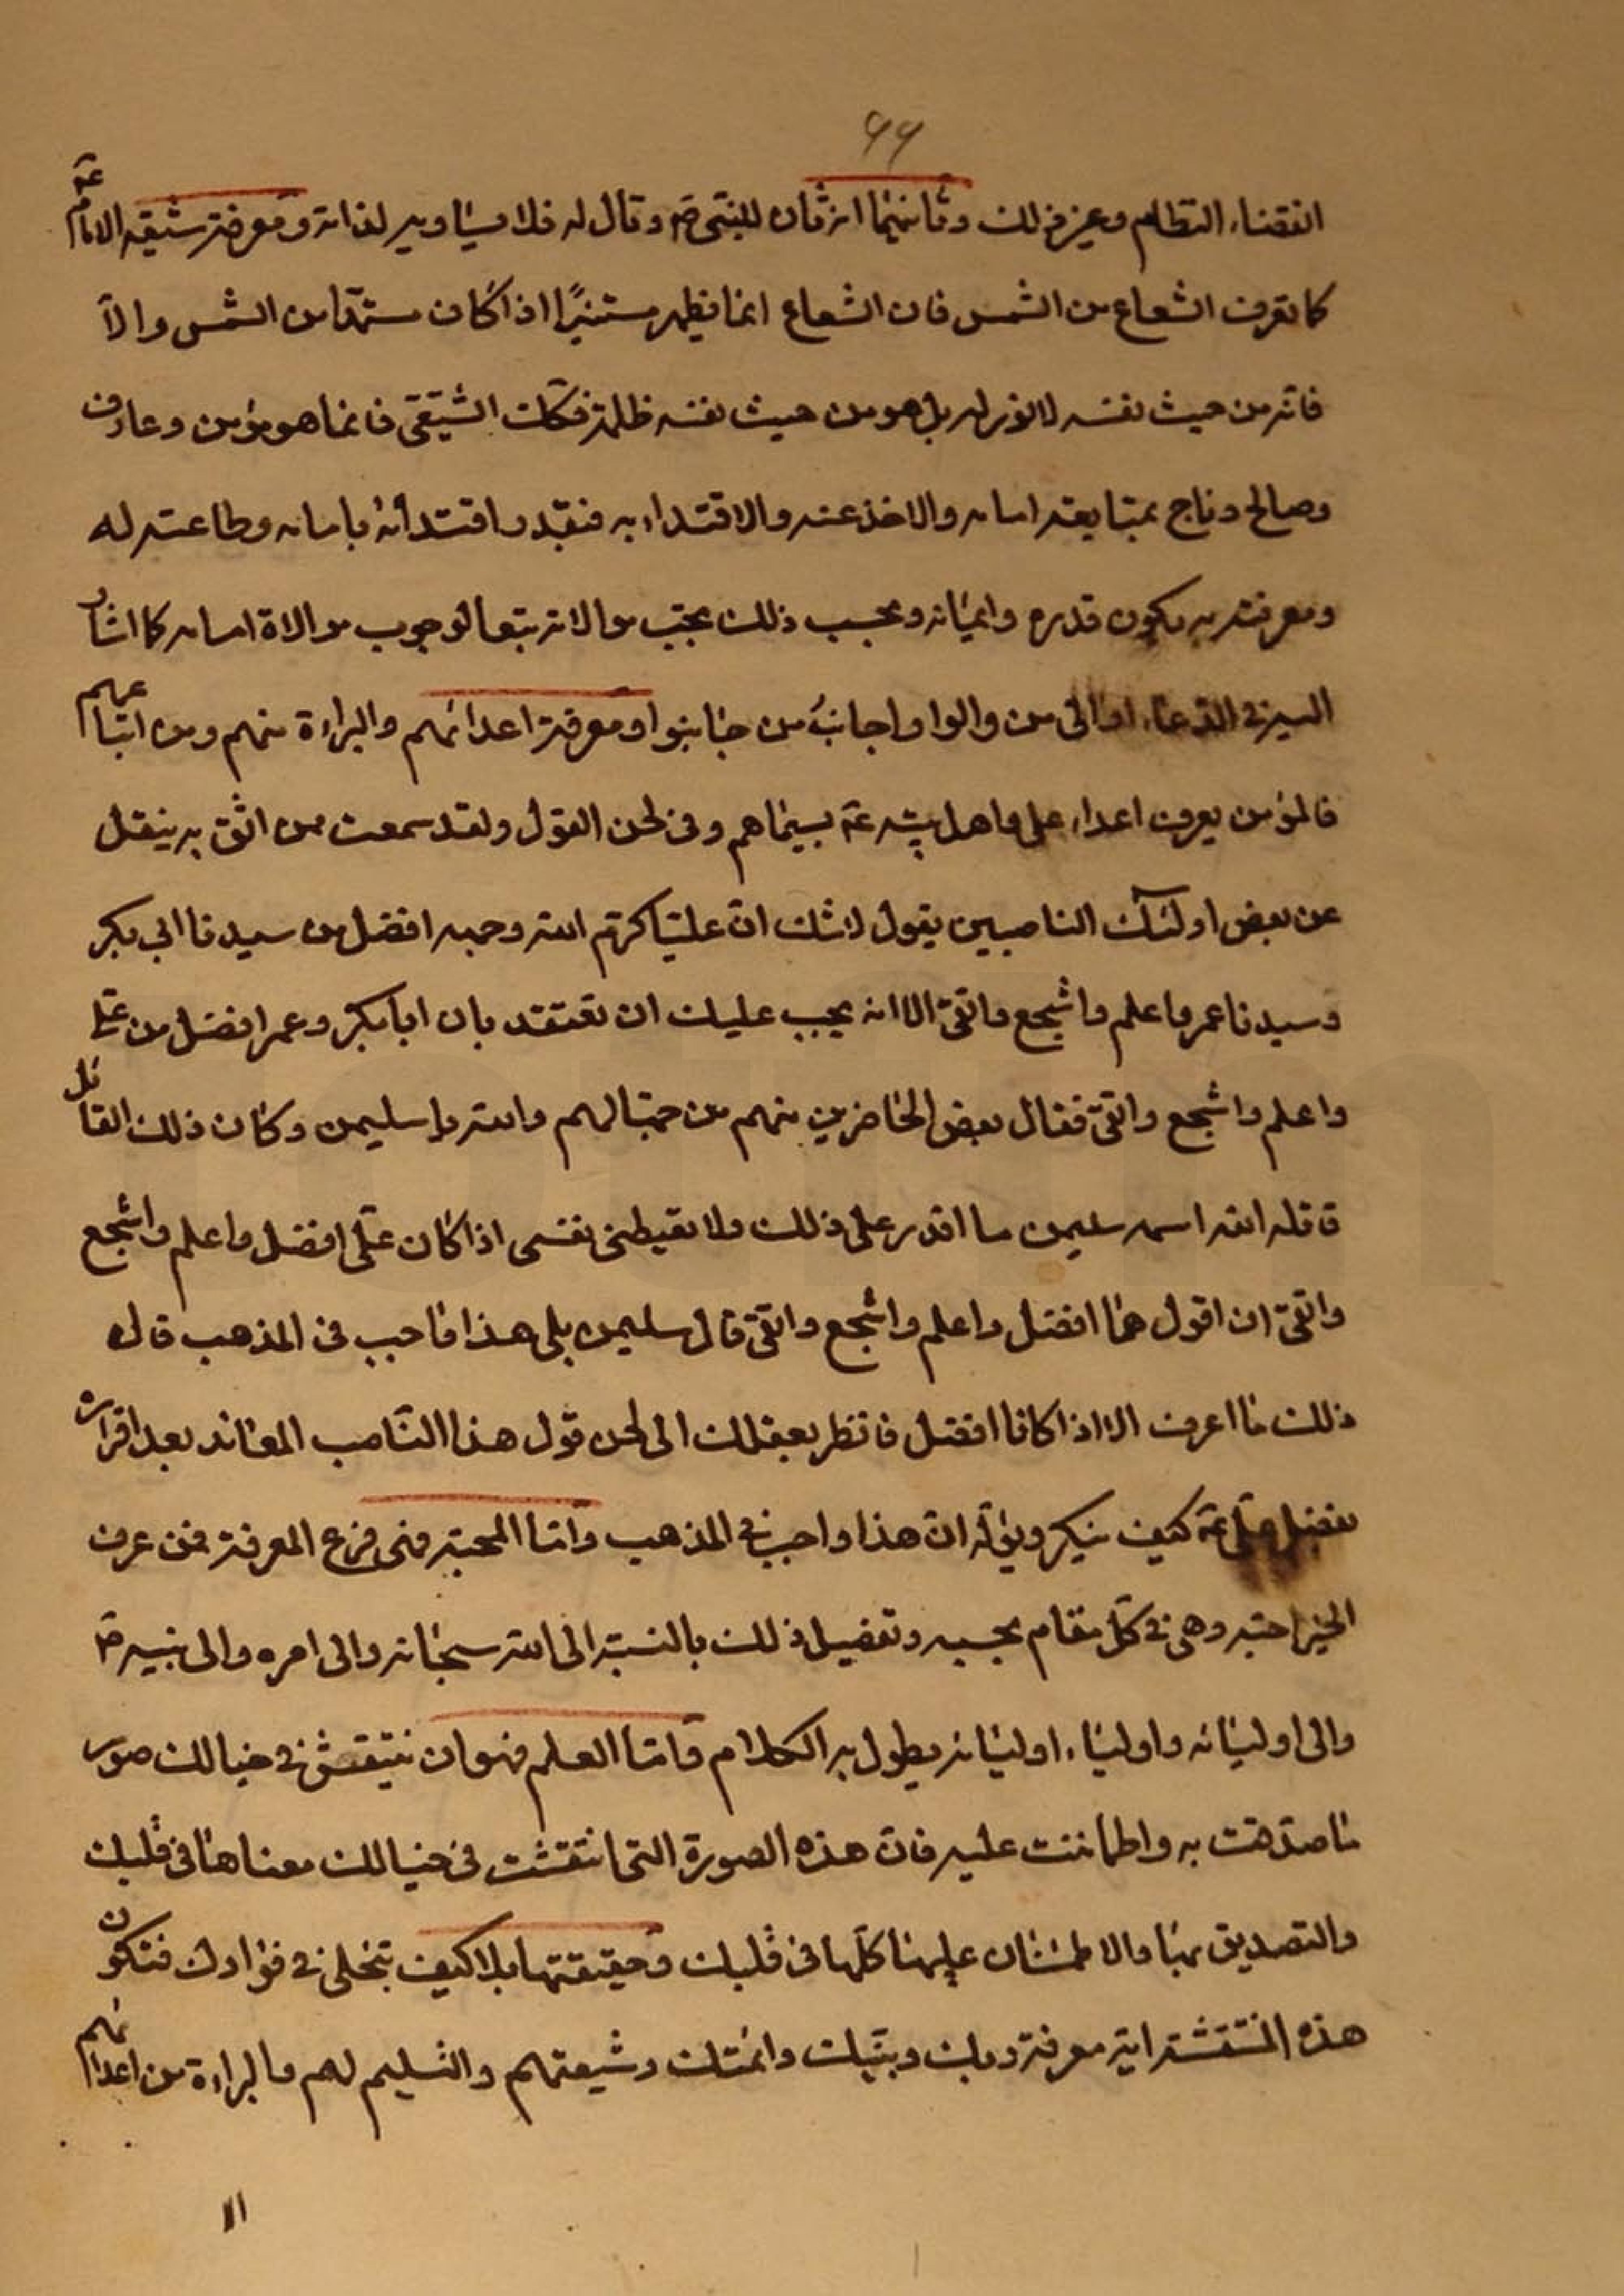 ٩٩
انقضاء النظام وغير ذلك وثانيهما انه ثان للنبى ص وقال له فلا يساويه لذاته ومعرفة شيعة الامام ع
كما تعرف الشعاع من الشمس فان الشعاع انما يظهر مستنيرًا اذا كان مستمدا من الشمس والا
فانه من حيث نفسه لا نور له بل هو من حيث نفسه ظلمة فكك الشيعى فانما هو مؤمن وعارف
وصالح وناج بمتابعة امامه والاخذ عنه والاقتداء به فبقدر اقتدائه بامامه وطاعته له
ومعرفته به يكون قدره وايمانه وبحسب ذلك يجب موالاته تبعا لوجوب موالاة امامه كما اشار
اليه فى الدعاء اوالى من والوا واجانب من جانبوا ومعرفة اعدائهم والبراءة منهم ومن اتباعهم
فالمؤمن يعرف اعداء على واهل بيته ع بسيماهم وفى لحن القول ولقد سمعت من اثق به ينقل
عن بعض اولئك الناصبين يقول لا شك ان عليا كرم الله وجهه افضل من سيدنا ابى بكر
وسيدنا عمر واعلم واشجع واتقى الا انه يجب عليك ان تعتقد بان ابا بكر وعمر افضل من على
واعلم واشجع واتقى فقال بعض الحاضرين منهم من جهالهم والله يا سليمن وكان ذلك القائل
قاتله الله اسمه سليمن ما اقدر على ذلك ولا تعيطنى نفسى اذا كان على افضل واعلم واشجع
واتقى ان اقول هما افضل واعلم واشجع واتقى قال سليمن بلى هذا واجب فى المذهب قال
ذلك ما اعرف الا اذا كانا افضل فانظر بعقلك الى لحن قول هذا الناصب المعاند بعد اقراره
بفضل على ع كيف ينكر ويق له ان هذا واجب فى المذهب واما المحبة فهى فرع المعرفة فمن عرف
الخير احبه وهى فى كل مقام بحسبه وتفصيل ذلك بالنسبة الى الله سبحانه والى امره والى نبيه ص
والى اوليائه واولياء اوليائه يطول به الكلام واما العلم فهو ان ينتقش فى خيالك صور
ما صدقت به واطماننت عليه فان هذه الصورة التى انتقشت فى خيالك معناها فى قلبك
والتصديق بها والاطمئنان عليها كلها فى قلبك وحقيقتها بلا كيف تتجلى فى فؤادك فتكون
هذه المنتقشة اية معرفة ربك ونبيك وائمتك وشيعتهم والتسليم لهم والبراءة من اعدائهم